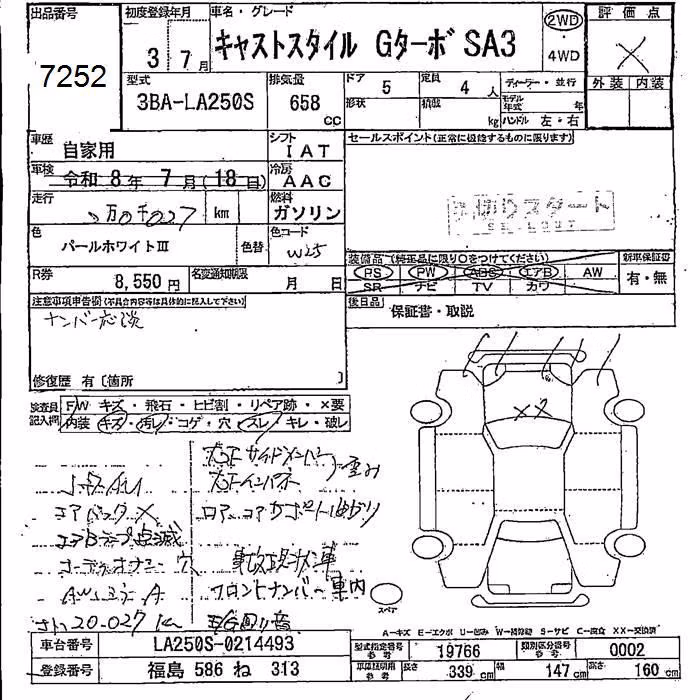 出品番号
7252
初度登録年月
3年7月
車名・グレード
キャストスタイル Gターボ SA3
2WD
・
4WD
評価点
X
外装 内装
型式
3BA-LA250S
排気量
658 CC
ドア 5
定員 4 人
形状
積載 kg
ディーラー・並行
モデル年式 年
ハンドル 左・右
車歴
自家用
シフト
IAT
車検
令和 8年 7月(18日)
冷房
AAC
走行
km
燃料
ガソリン
色
パールホワイトⅢ
色替
色コード
W25
R券
8,550 円
名変通知期限
月 日
セールスポイント(正常に機能するものに限ります)
装備品(純正品に限り○をつけてください)
PS PW ABS エアB AW
SR ナビ TV カワ
新車保証書
有・無
後日品
保証書・取説
注意事項申告欄(不具合内容等は具体的に記入して下さい)
ナンバー応談
修復歴 有〔箇所 〕
検査員記入欄
FW キズ・飛石・ヒビ割・リペア跡・×要
内装 キズ・汚レ・コゲ・穴・ズレ・キレ・破レ
エアバッグ X
エアBランプ点滅
右Fサイドメンバー
右Fインパネ
歪み
コアサポート曲がり
事故現状車
フロントナンバー車内
20.027 K
XX
スペア
A-キズ E-エクボ U-凹み W-補修跡 S-サビ C-腐食 XX-交換済
車台番号
LA250S-0214493
登録番号
福島 586 ね 313
型式指定番号 参考
19766
類別区分番号 参考
0002
車庫証明用 参考
長さ 339 cm
幅 147 cm
高さ 160 cm